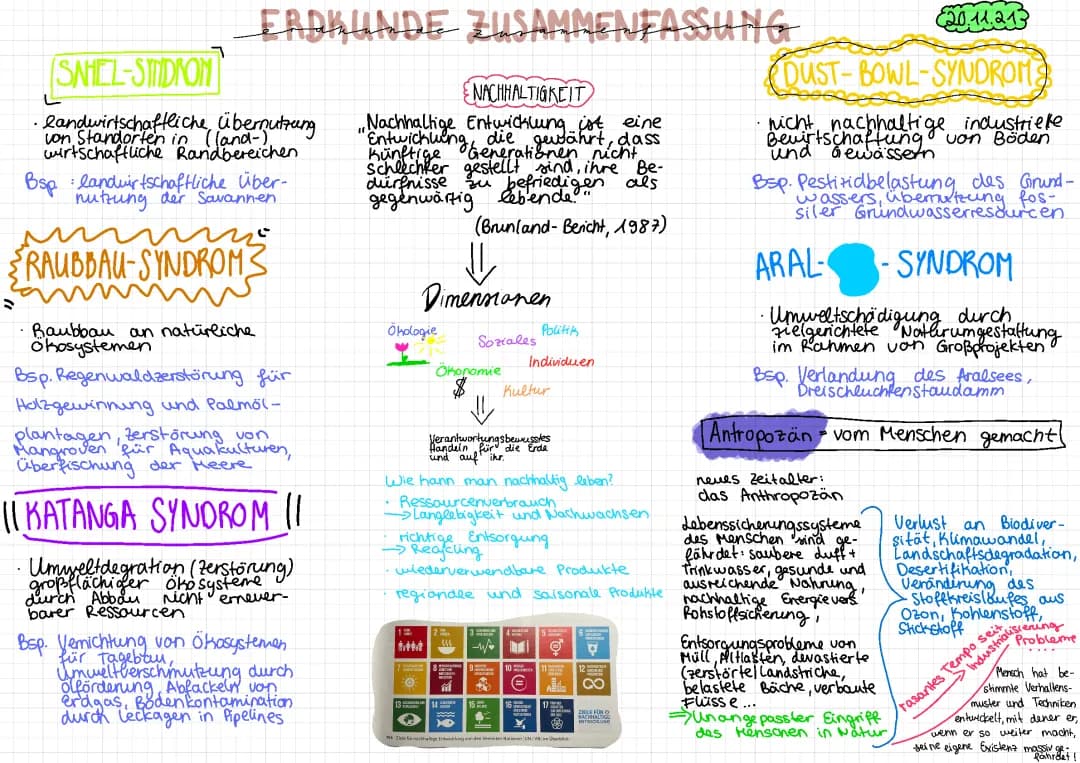 ERDKUNDE ZUSAMMENFASSUNG
erdkunde zusammenfassung
20.11.21
SAHEL-SYNDROM
· landwirtschaftliche Übernutzung
von Standorten in (land-)
wirtschaftliche Randbereichen
Bsp : landwirtschaftliche Über-
nutzung der Savannen
RAUBBAU-SYNDROM
· Raubbau an natürliche
Ökosystemen
Bsp. Regenwaldzerstörung für
Holzgewinnung und Palmöl-
plantagen, Zerstörung von
Mangroven für Aquakulturen,
Überfischung der Meere
KATANGA SYNDROM
· Umweltdegration (Zerstörung)
großflächiger Ökosysteme
durch Abbau nicht erneuer-
barer Ressourcen
Bsp. Vernichtung von Ökosystemen
für Tagebau,
Umweltverschmutzung durch
Ölförderung, Abfackeln von
erdgas, Bodenkontamination
durch Leckagen in Pipelines
NACHHALTIGKEIT
„Nachhaltige Entwicklung ist eine
Entwicklung, die gewährt, dass
künftige Generationen nicht
schlechter gestellt sind, ihre Be-
dürfnisse zu befriedigen als
gegenwärtig lebende."
(Brunland-Bericht, 1987)
Dimensionen
Ökologie
Soziales
Politik
Ökonomie
$
Individuen
Kultur
Verantwortungsbewusstes
Handeln für die Erde
und auf ihr.
Wie kann man nachhaltig leben?
· Ressourcenverbrauch
→ Langlebigkeit und Nachwachsen
· richtige Entsorgung
→ Recycling
· wiederverwendbare Produkte
· regionale und saisonale Produkte
1
2
3
4
5
6
7
8
9
10
11
12
13
14
15
16
17
ZIELE FÜR
NACHHALTIGE
ENTWICKLUNG
DUST-BOWL-SYNDROM
· nicht nachhaltige industrielle
Bewirtschaftung von Böden
und Gewässern
Bsp. Pestizidbelastung des Grund-
wassers, Übernutzung fos-
siler Grundwasserresourcen
ARAL- - SYNDROM
· Umweltschädigung durch
zielgerichtete Naturumgestaltung
im Rahmen von Großprojekten
Bsp. Verlandung des Aralsees,
Dreischluchtenstaudamm
Antropozän = vom Menschen gemacht
neues Zeitalter:
das Anthropozän
Lebenssicherungssysteme
des Menschen sind ge-
fährdet: saubere Luft +
Trinkwasser, gesunde und
ausreichende Nahrung,
nachhaltige Energievers.
Rohstoffsicherung,
Entsorgungsprobleme von
Müll, Altlasten, devastierte
(zerstörte) Landstriche,
belastete Bäche, verbaute
Flüsse...
⇒ Unangepasster Eingriff
des Menschen in Natur
Verlust an Biodiver-
sität, Klimawandel,
Landschaftsdegradation,
Desertifikation,
Veränderung des
Stoffkreislaufes aus
Ozon, Kohlenstoff,
Stickstoff
rasantes Tempo seit
Industrialisierung
Probleme
Mensch hat be-
stimmte Verhaltens-
muster und Techniken
entwickelt, mit dener er,
wenn er so weiter macht,
seine eigene Existenz massiv ge-
fährdet!